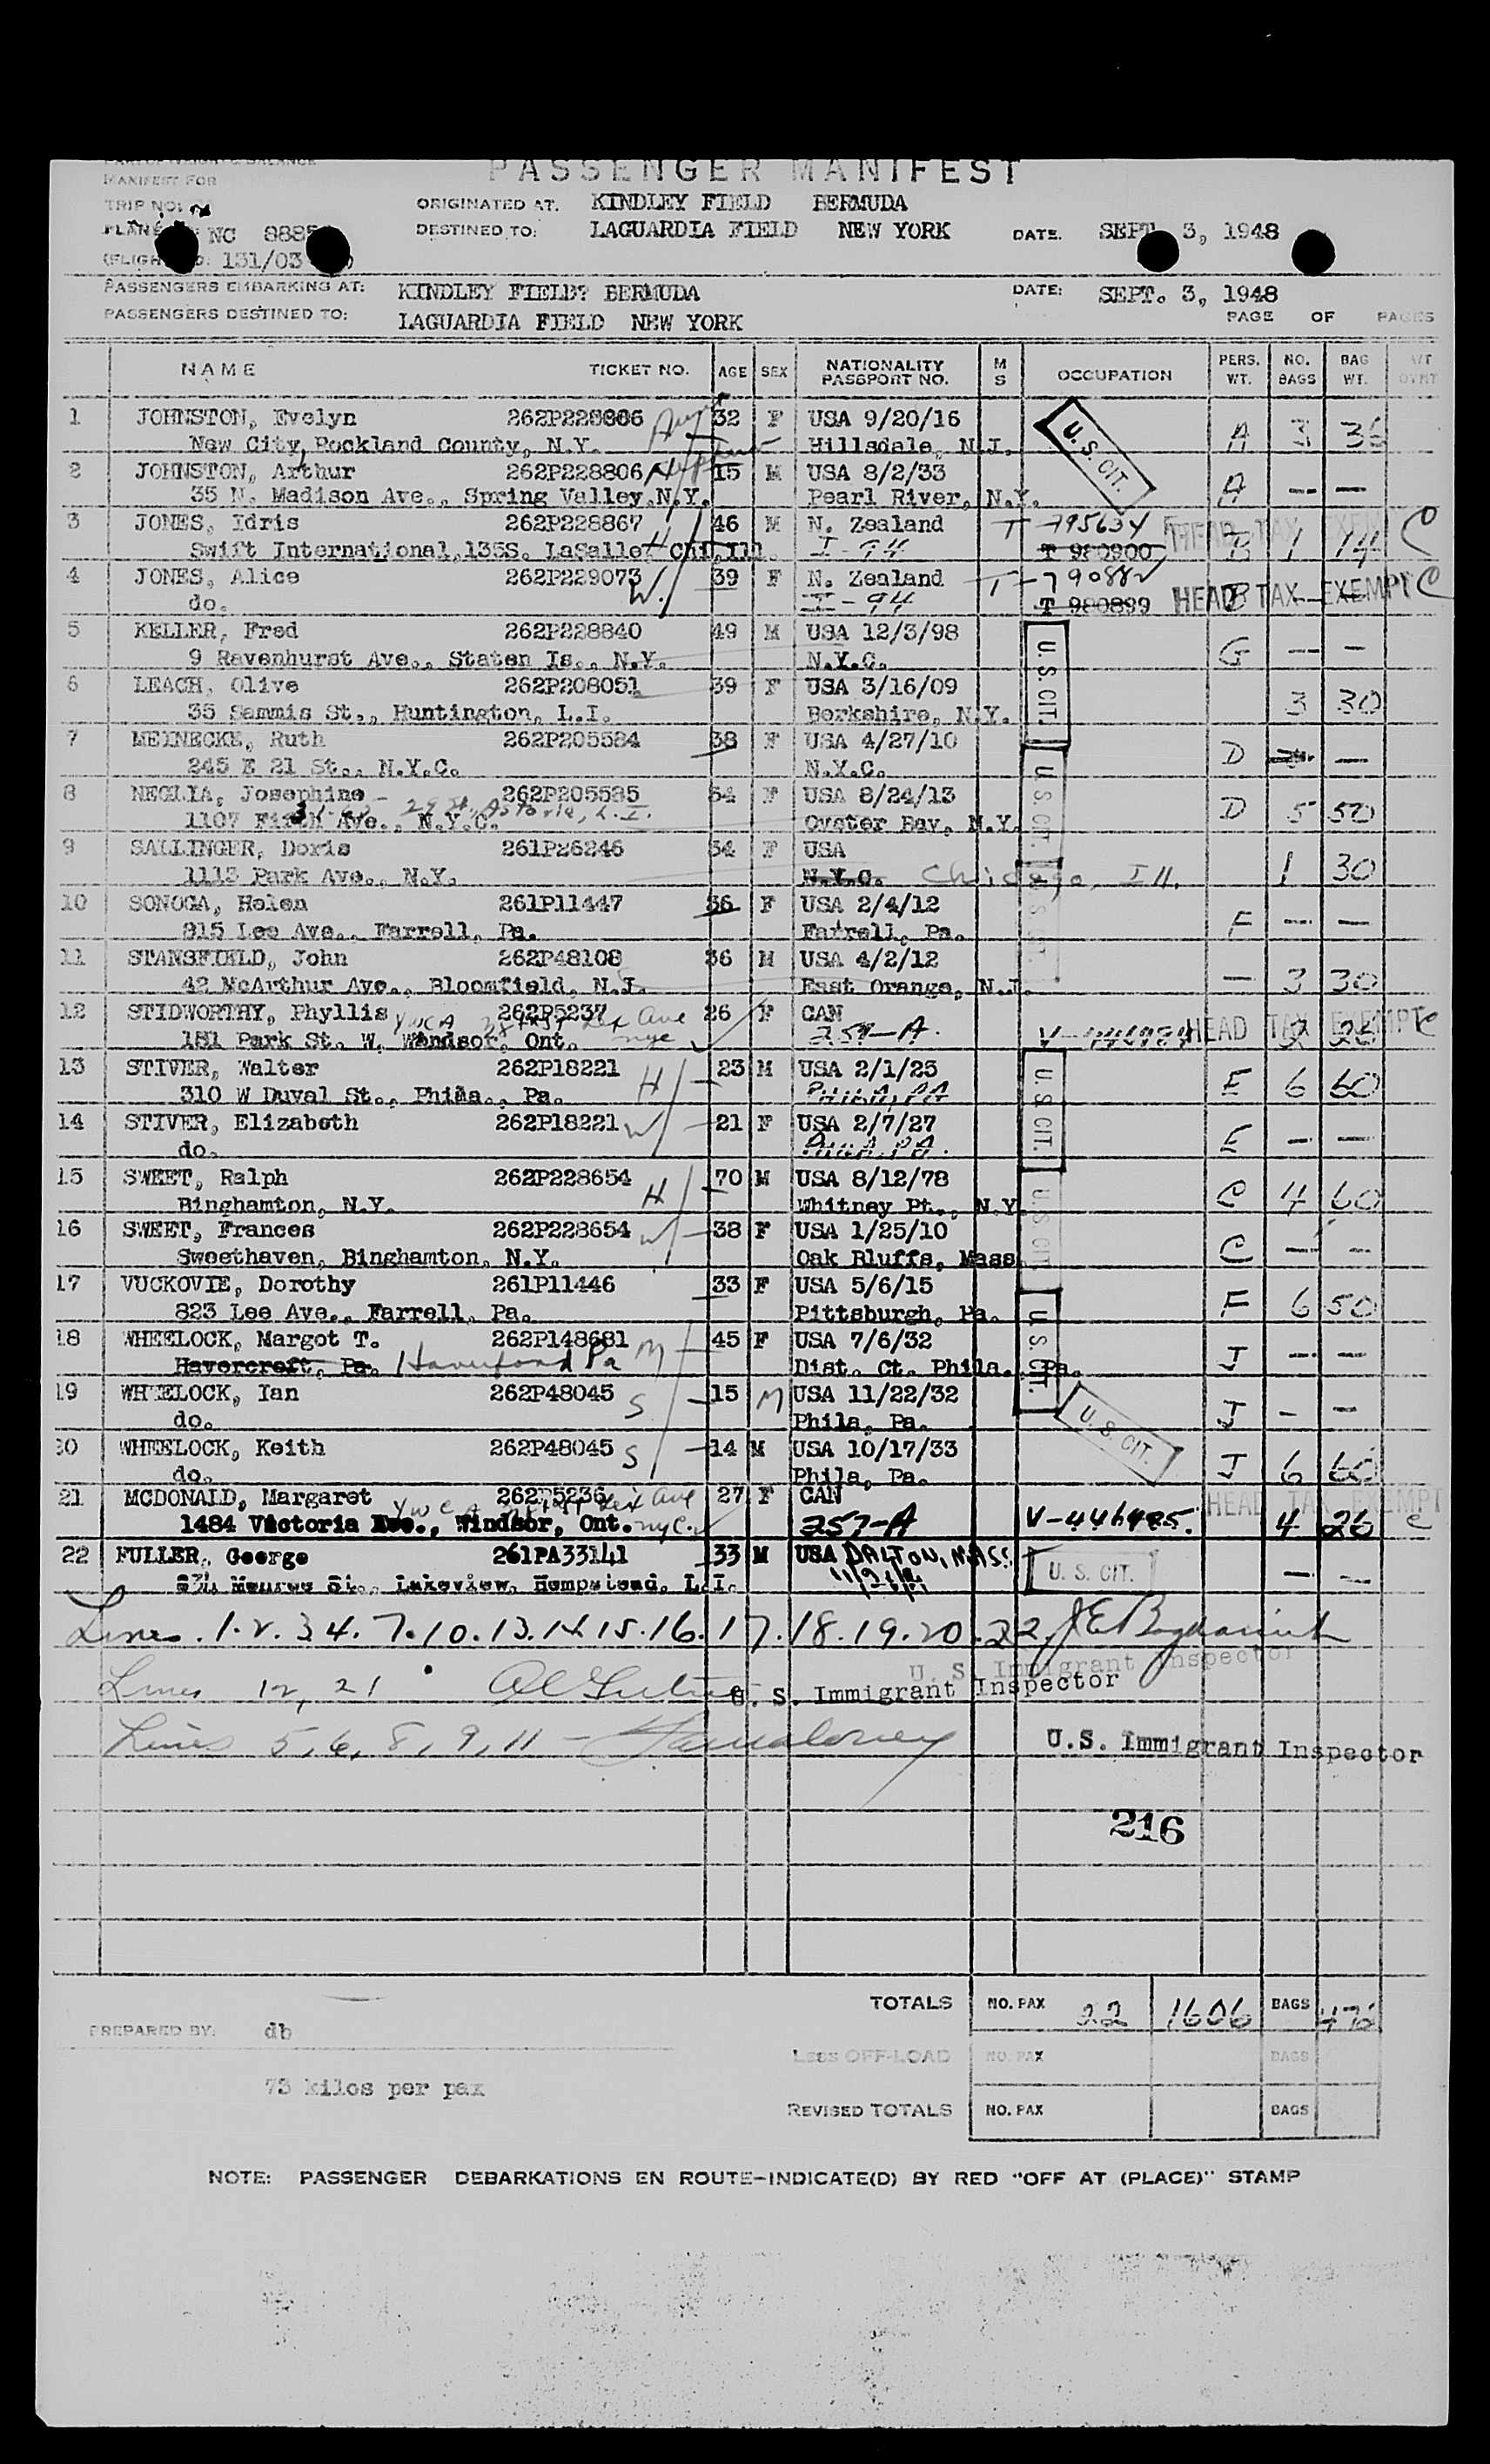 PASSENGER MANIFEST
MANIFEST FOR
TRIP NO:
ORIGINATED AT. KINDLEY FIELD BERMUDA
PLANE NC 8885
DESTINED TO: LAGUARDIA FIELD NEW YORK DATE. SEPT 3, 1948
131/03
PASSENGERS EMBARKING AT: KINDLEY FIELD? BERMUDA DATE: SEPT. 3, 1948
PASSENGERS DESTINED TO: LAGUARDIA FIELD NEW YORK PAGE OF PAGES
NAME TICKET NO. AGE SEX NATIONALITY PASSPORT NO. M S OCCUPATION PERS. WT. NO. BAGS BAG WT.
1 JOHNSTON, Evelyn 262P228806 32 F USA 9/20/16 U.S. CIT. A 3 36
New City, Rockland County, N.Y. Hillsdale, N.J.
2 JOHNSTON, Arthur 262P228806 Nephew 15 M USA 8/2/33 A — —
35 N. Madison Ave., Spring Valley,N.Y. Pearl River, N.Y.
3 JONES, Idris 262P228867 H 46 M N. Zealand T-795634 HEAD TAX EXEMPT B 1 14 C
Swift International,135S. LaSalle, Chi,Ill. I-94 T 980900
4 JONES, Alice 262P229073 W. 39 F N. Zealand T-790882 HEAD TAX EXEMPT B — — C
do. I-94 T 980899
5 KELLER, Fred 262P228840 49 M USA 12/3/98 U.S. CIT. G — —
9 Ravenhurst Ave., Staten Is., N.Y. N.Y.C.
6 LEACH, Olive 262P208051 39 F USA 3/16/09 3 30
35 Sammis St., Huntington, L.I. Berkshire, N.Y.
7 MEINECKE, Ruth 262P205584 38 F USA 4/27/10 U.S. CIT. D —
245 E 21 St., N.Y.C. N.Y.C.
8 NEGLIA, Josephine 262P205585 34 F USA 8/24/13 D 5 50
1107 Fifth Ave., N.Y.C. 29 St, Astoria, L.I. Oyster Bay, N.Y.
9 SALLINGER, Doris 261P26246 34 F USA 1 30
1113 Park Ave., N.Y. N.Y.C. Chicago, Ill.
10 SONOGA, Helen 261P11447 36 F USA 2/4/12 F — —
815 Lee Ave., Farrell, Pa. Farrell, Pa.
11 STANSFIELD, John 262P48108 36 M USA 4/2/12 — 3 30
42 McArthur Ave., Bloomfield, N.J. East Orange, N.J.
12 STIDWORTHY, Phyllis 262P5237 26 F CAN HEAD TAX EXEMPT 2 26 C
181 Park St. W. Windsor, Ont. YWCA Lex Ave nyc 257-A.
13 STIVER, Walter 262P18221 H 23 M USA 2/1/25 U.S. CIT. E 6 60
310 W Duval St., Phila., Pa. PHILA, PA
14 STIVER, Elizabeth 262P18221 W 21 F USA 2/7/27 E — —
do. PHILA, PA.
15 SWEET, Ralph 262P228654 H 70 M USA 8/12/78 U.S. CIT. C 4 60
Binghamton, N.Y. Whitney Pt., N.Y.
16 SWEET, Frances 262P228654 W 38 F USA 1/25/10 C — —
Sweethaven, Binghamton, N.Y. Oak Bluffs, Mass
17 VUCKOVIE, Dorothy 261P11446 33 F USA 5/6/15 U.S. CIT. F 6 50
823 Lee Ave., Farrell, Pa. Pittsburgh, Pa.
18 WHEELOCK, Margot T. 262P148681 M 45 F USA 7/6/32 J — —
Havercroft, Pa. Haverford Pa Dist. Ct. Phila., Pa.
19 WHEELOCK, Ian 262P48045 S 15 M USA 11/22/32 U.S. CIT. J — —
do. Phila, Pa.
20 WHEELOCK, Keith 262P48045 S 14 M USA 10/17/33 J 6 60
do. Phila, Pa.
21 MCDONALD, Margaret 262P5236 27 F CAN HEAD TAX EXEMPT
1484 Victoria Ave., Windsor, Ont. YWCA Lex Ave nyc. 257-A V-446985. 4 26 C
22 FULLER, George 261PA33141 33 M USA DALTON, MASS U.S. CIT. — —
Lakeview, Hempstead, L.I.
Lines. 1.2.3 4. 7. 10. 13. 14 15. 16. 17. 18. 19. 20. 22.
U. S. Immigrant Inspector
Lines 12, 21 U. S. Immigrant Inspector
Lines 5, 6, 8, 9, 11 — U.S. Immigrant Inspector
216
TOTALS NO. PAX 22 1606 BAGS 476
PREPARED BY: db
Less OFF-LOAD NO. PAX BAGS
73 kilos per pax
REVISED TOTALS NO. PAX BAGS
NOTE: PASSENGER DEBARKATIONS EN ROUTE-INDICATE(D) BY RED "OFF AT (PLACE)" STAMP